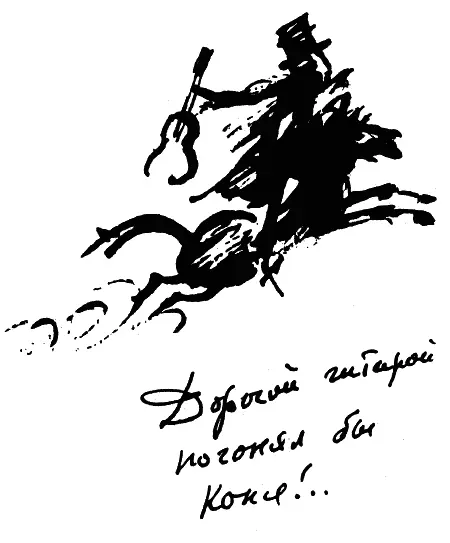 Дорогой гитарой
погонял бы
коня!..